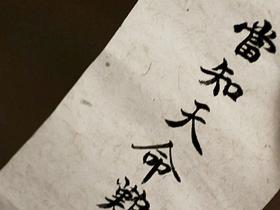 當知天命難